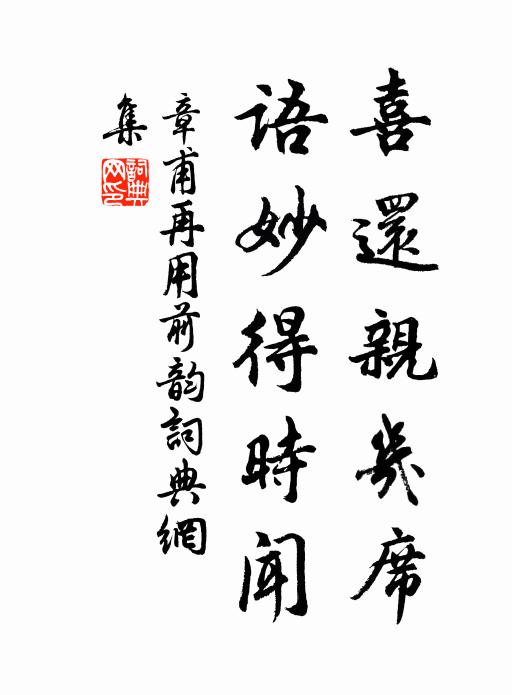 喜還親幾席
語妙得時聞
章甫再用前韵詞典網
集
詞典網印